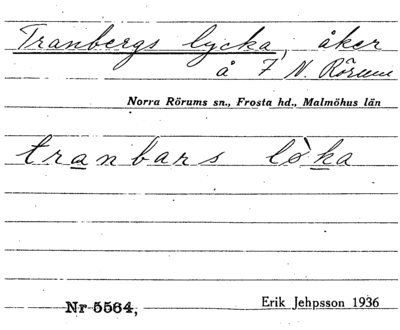 Tranbergs lycka, åker
å 7 N. Rörum
Norra Rörums sn., Frosta hd., Malmöhus län
tranbars lòka
Nr 5564,
Erik Jehpsson 1936